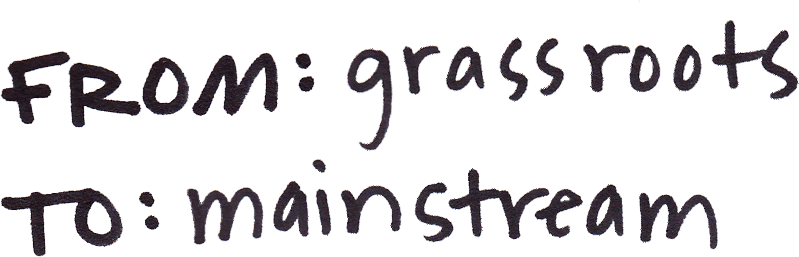 FROM: grassroots
TO: mainstream